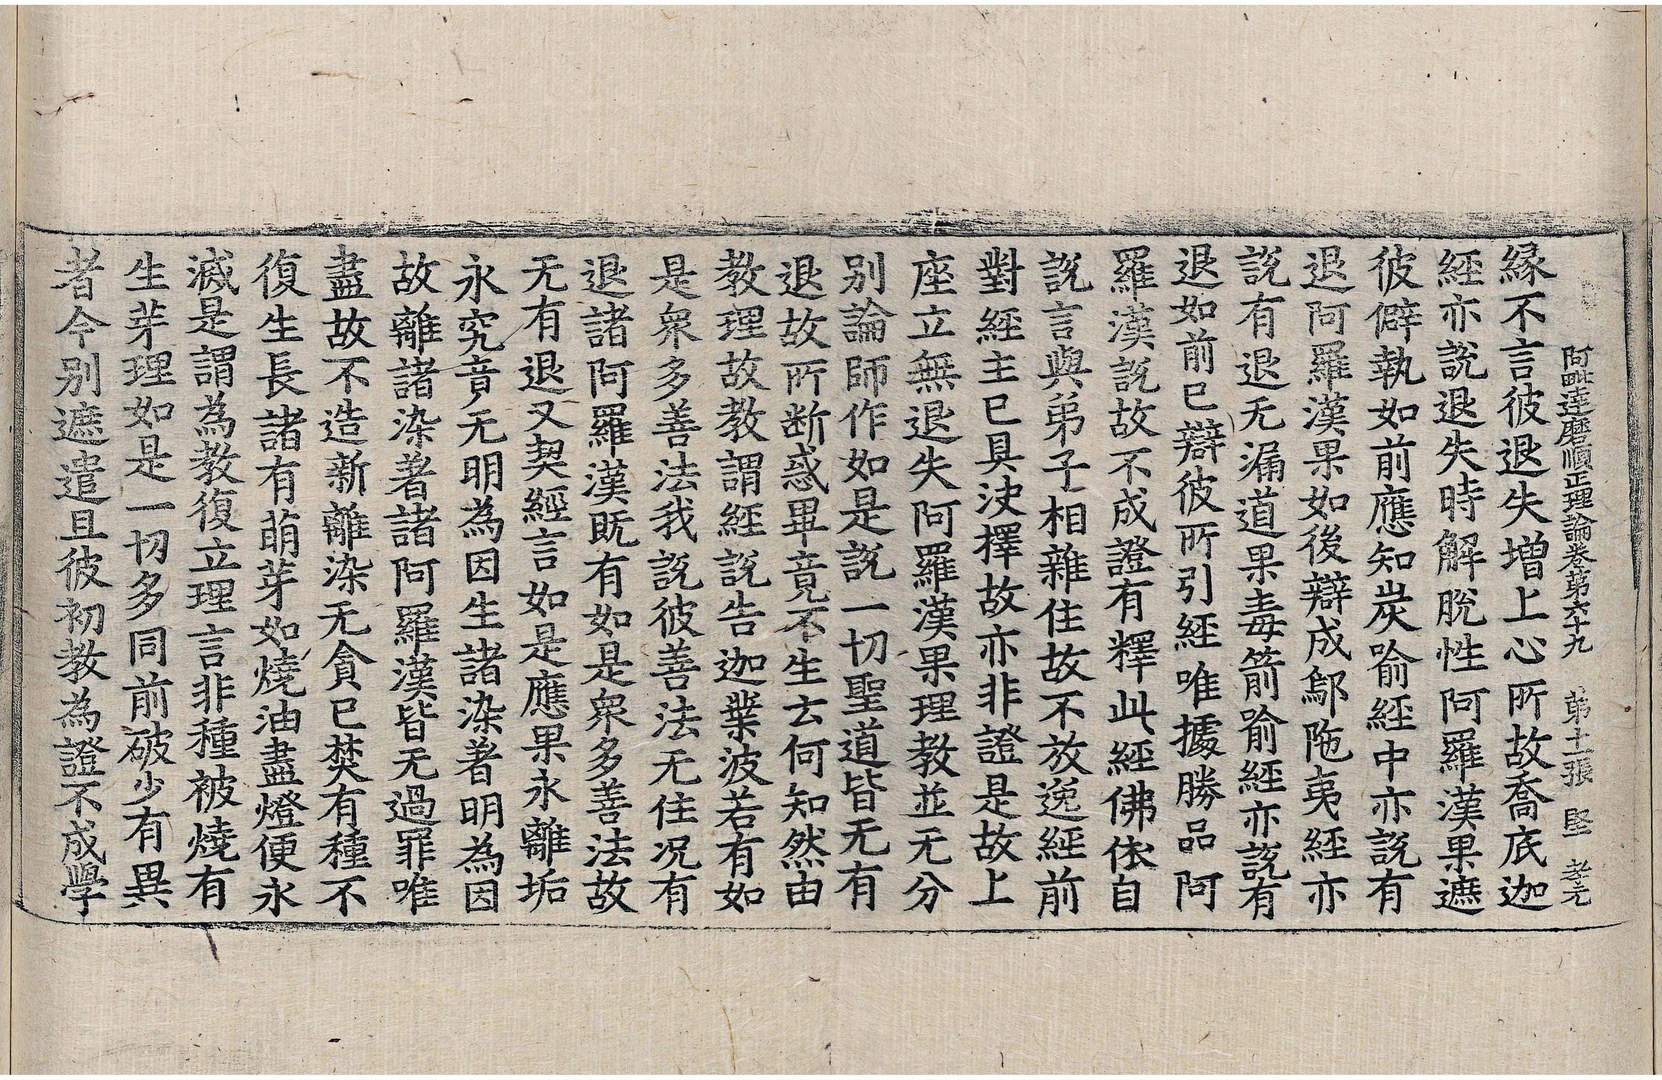 阿毗達磨順正理論卷第六十九 第十一張 堅 孝元
縁不言彼退失增上心所故喬底迦
經亦説退失時解脫性阿羅漢果遮
彼僻執如前應知炭喻經中亦説有
退阿羅漢果如後辯成鄔陁夷經亦
説有退无漏道果毒箭喻經亦説有
退如前已辯彼所引經唯據勝品阿
羅漢説故不成證有釋此經佛依自
説言與弟子相雜住故不放逸經前
對經主已具決擇故亦非證是故上
座立無退失阿羅漢果理教並无分
別論師作如是説一切聖道皆无有
退故所断惑畢竟不生云何知然由
教理故教謂經説告迦葉波若有如
是衆多善法我説彼善法无住況有
退諸阿羅漢既有如是衆多善法故
无有退又契經言如是應果永離垢
永究竟无明為因生諸染著明為因
故離諸染著諸阿羅漢皆无過罪唯
盡故不造新離染无貪已焚有種不
復生長諸有萌芽如燒油盡燈便永
滅是謂為教復立理言非種被燒有
生芽理如是一切多同前破少有異
者今別遮遣且彼初教為證不成學